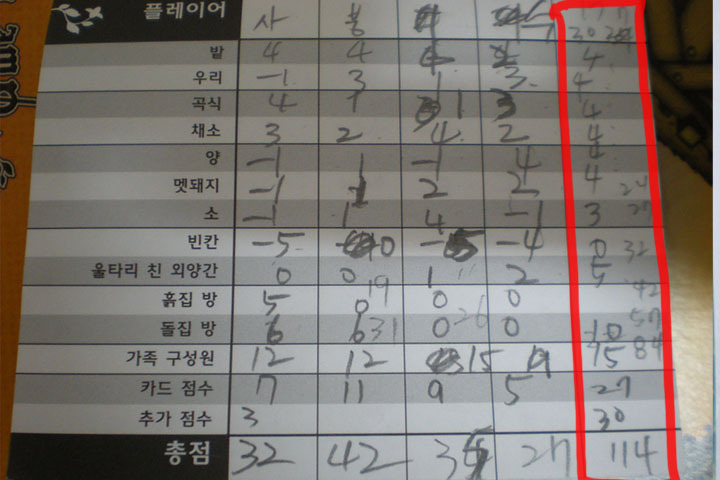 플레이어 사 봉
밭 4 4 4 4
우리 -1 3 1 3 4
곡식 4 1 1 3 4
채소 3 2 4 2 4
양 -1 1 -1 4 4
멧돼지 -1 1 2 2 4 24
소 -1 1 4 -1 3 27
빈칸 -5 0 -5 -4 0 32
울타리 친 외양간 0 0 1 2 5
흙집 방 5 0 19 0 0 42
돌집 방 6 6 31 0 26 0 10 57
가족 구성원 12 12 15 9 15 84
카드 점수 7 11 9 5 27
추가 점수 3 30
총점 32 42 35 27 114